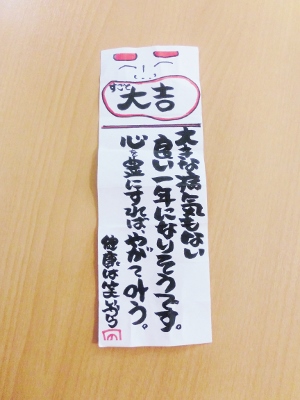 すごく
大吉
大きな病気もない
良い一年になりそうです。
心を豊にすれば、やがて叶う。
健康は笑いから
の